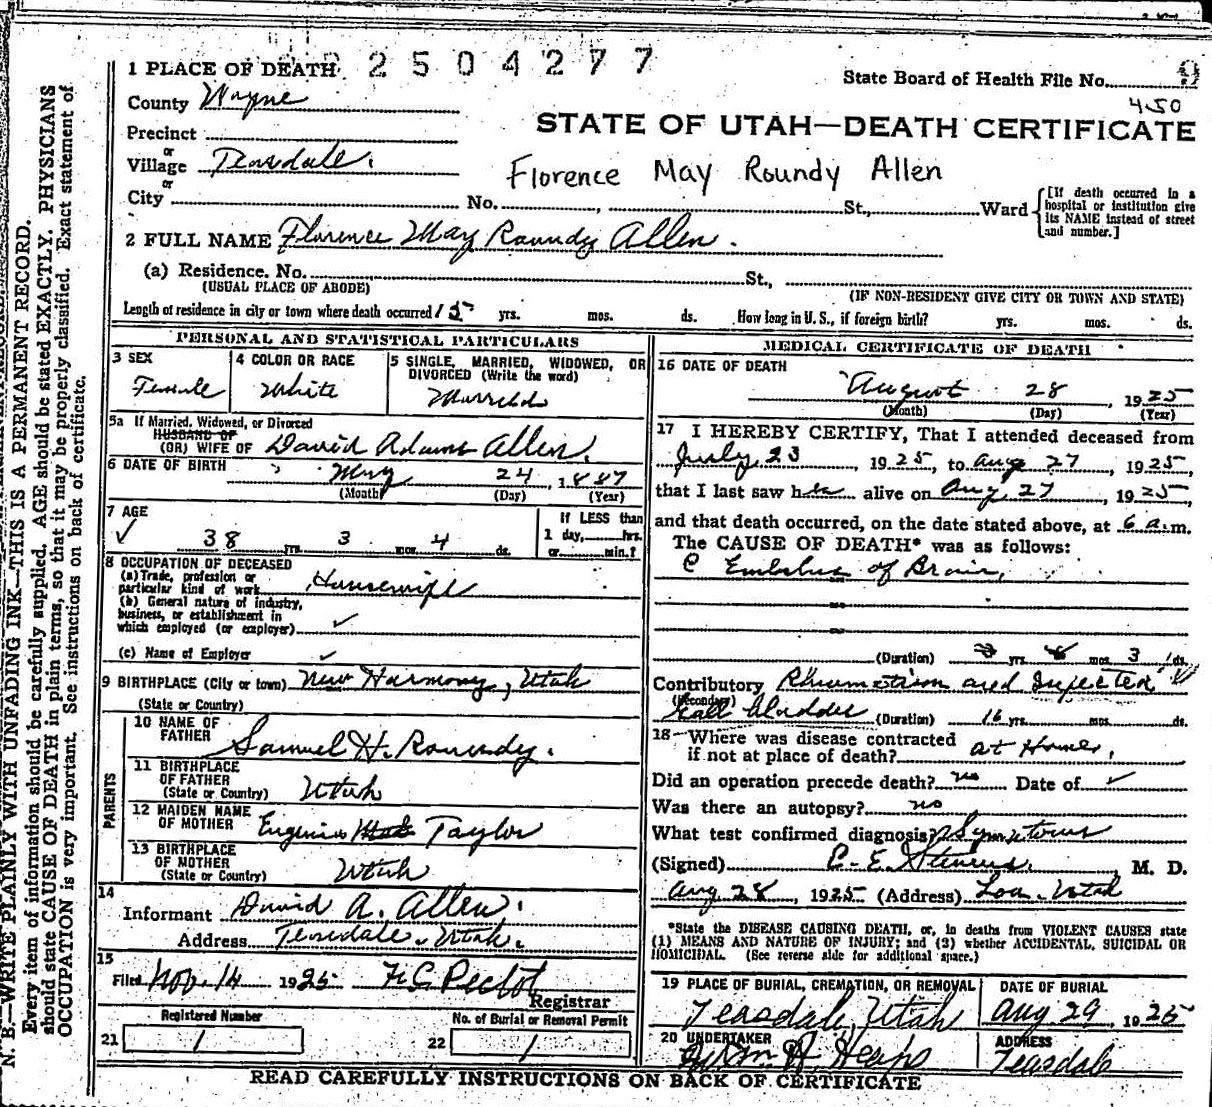 2 5 0 4 2 7 7
1 PLACE OF DEATH
State Board of Health File No. 9
450
County Wayne
STATE OF UTAH—DEATH CERTIFICATE
Precinct
or
Village Teasdale.
Florence May Roundy Allen
or
City No. , St., Ward
[If death occurred in a hospital or institution give its NAME instead of street and number.]
2 FULL NAME Florence May Roundy Allen.
(a) Residence. No. St.,
(USUAL PLACE OF ABODE)
(IF NON-RESIDENT GIVE CITY OR TOWN AND STATE)
Length of residence in city or town where death occurred 15 yrs. mos. ds. How long in U. S., if foreign birth? yrs. mos. ds.
PERSONAL AND STATISTICAL PARTICULARS
3 SEX
Female
4 COLOR OR RACE
White
5 SINGLE, MARRIED, WIDOWED, OR DIVORCED (Write the word)
Married
5a If Married, Widowed, or Divorced
HUSBAND OF
(OR) WIFE OF David Adams Allen.
6 DATE OF BIRTH May 24, 1887
(Month) (Day) (Year)
7 AGE
✓ 38 yrs. 3 mos. 4 ds.
If LESS than
1 day, hrs.
or min.?
8 OCCUPATION OF DECEASED
(a) Trade, profession or
particular kind of work Housewife
(b) General nature of industry,
business, or establishment in
which employed (or employer) ✓
(c) Name of Employer ✓
9 BIRTHPLACE (City or town) New Harmony, Utah
(State or Country)
PARENTS
10 NAME OF
FATHER Samuel H. Roundy.
11 BIRTHPLACE
OF FATHER
(State or Country) Utah
12 MAIDEN NAME
OF MOTHER Eugenia Taylor
13 BIRTHPLACE
OF MOTHER
(State or Country) Utah
14
Informant David A. Allen.
Address Teasdale, Utah.
15
Filed Nov. 14 1925 H C Pectol
Registrar
Registered Number
21 1
No. of Burial or Removal Permit
22 1
MEDICAL CERTIFICATE OF DEATH
16 DATE OF DEATH
August 28 1925
(Month) (Day) (Year)
17 I HEREBY CERTIFY, That I attended deceased from
July, 23, 1925, to Aug 27, 1925,
that I last saw her alive on Aug, 27, 1925
and that death occurred, on the date stated above, at 6 a.m.
The CAUSE OF DEATH* was as follows:
Embolus of Brain,
(Duration) yrs. mos. 3 ds.
Contributory Rheumatism and Infected
(Secondary)
Gall bladder (Duration) 16 yrs. mos. ds.
18 Where was disease contracted
if not at place of death? at Home.
Did an operation precede death? no Date of ✓
Was there an autopsy? no
What test confirmed diagnosis? Symptoms
(Signed) C. E. Stevens. M. D.
Aug 28, 1925 (Address) Loa. Utah
*State the DISEASE CAUSING DEATH, or, in deaths from VIOLENT CAUSES state
(1) MEANS AND NATURE OF INJURY; and (2) whether ACCIDENTAL, SUICIDAL OR
HOMICIDAL. (See reverse side for additional space.)
19 PLACE OF BURIAL, CREMATION, OR REMOVAL
Teasdale, Utah
DATE OF BURIAL
Aug 29, 1925
20 UNDERTAKER
H. Heaps
ADDRESS
Teasdale
READ CAREFULLY INSTRUCTIONS ON BACK OF CERTIFICATE
N. B.—WRITE PLAINLY WITH UNFADING INK—THIS IS A PERMANENT RECORD.
Every item of information should be carefully supplied. AGE should be stated EXACTLY. PHYSICIANS
should state CAUSE OF DEATH in plain terms, so that it may be properly classified. Exact statement of
OCCUPATION is very important. See instructions on back of certificate.